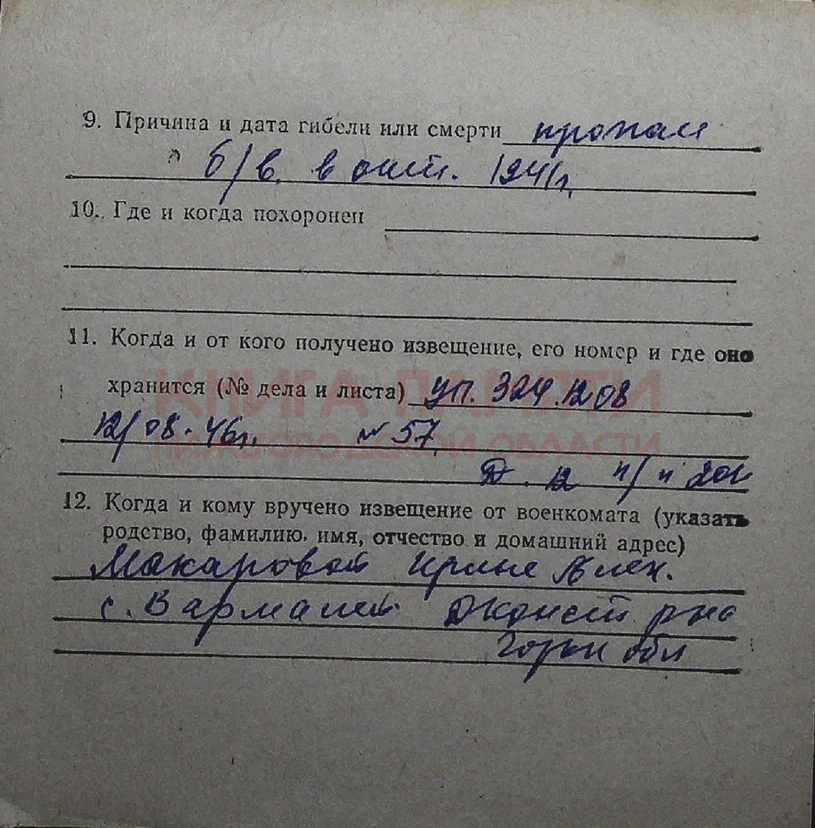 9. Причина и дата гибели или смерти пропал
б/в. в окт. 1941г.
10. Где и когда похоронен
11. Когда и от кого получено извещение, его номер и где оно
КНИГА ПАМЯТИ
хранится (№ дела и листа) уп. 324.1208
12/08-46г. №57
НИЖЕГОРОДСКОЙ ОБЛАСТИ
Д. 12 п/п
12. Когда и кому вручено извещение от военкомата (указать
родство, фамилию, имя, отчество и домашний адрес)
Макаровой Ирине Алек.
с. Вармалей Дконст р-на
Горьк обл